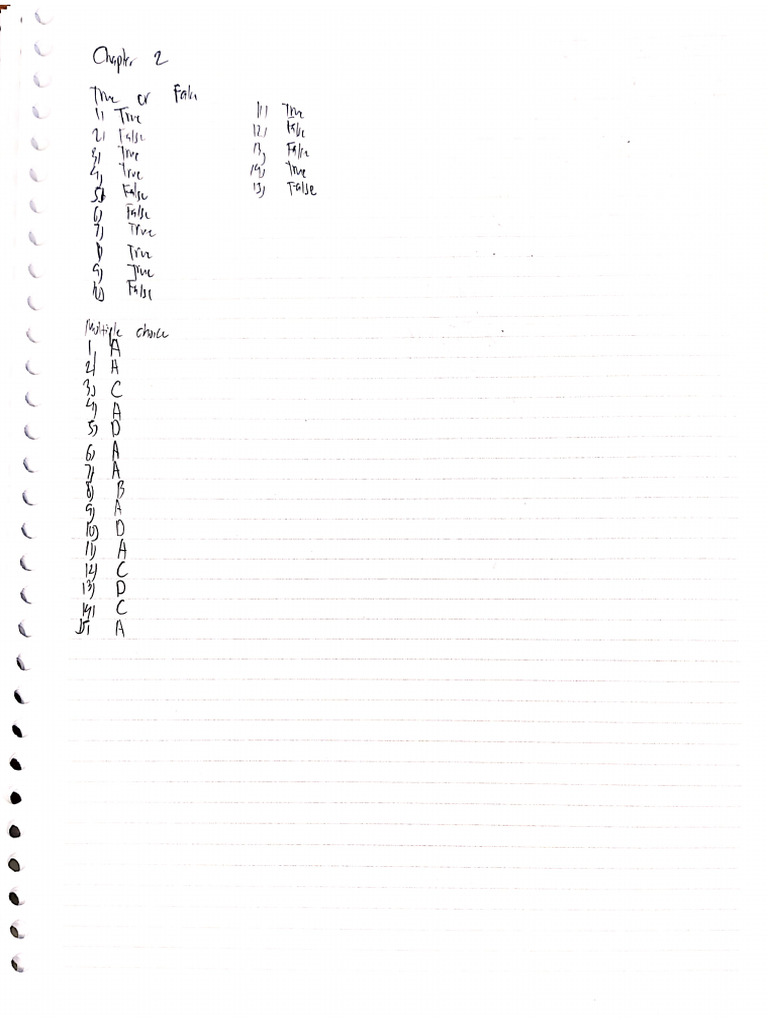 Chapter 2
True or False
1) True
2) False
3) True
4) True
5) False
6) False
7) True
8) True
9) True
10) False
11) True
12) False
13) False
14) True
15) False
Multiple choice
1) A
2) A
3) C
4) A
5) D
6) A
7) A
8) B
9) A
10) D
11) A
12) C
13) D
14) C
15) A